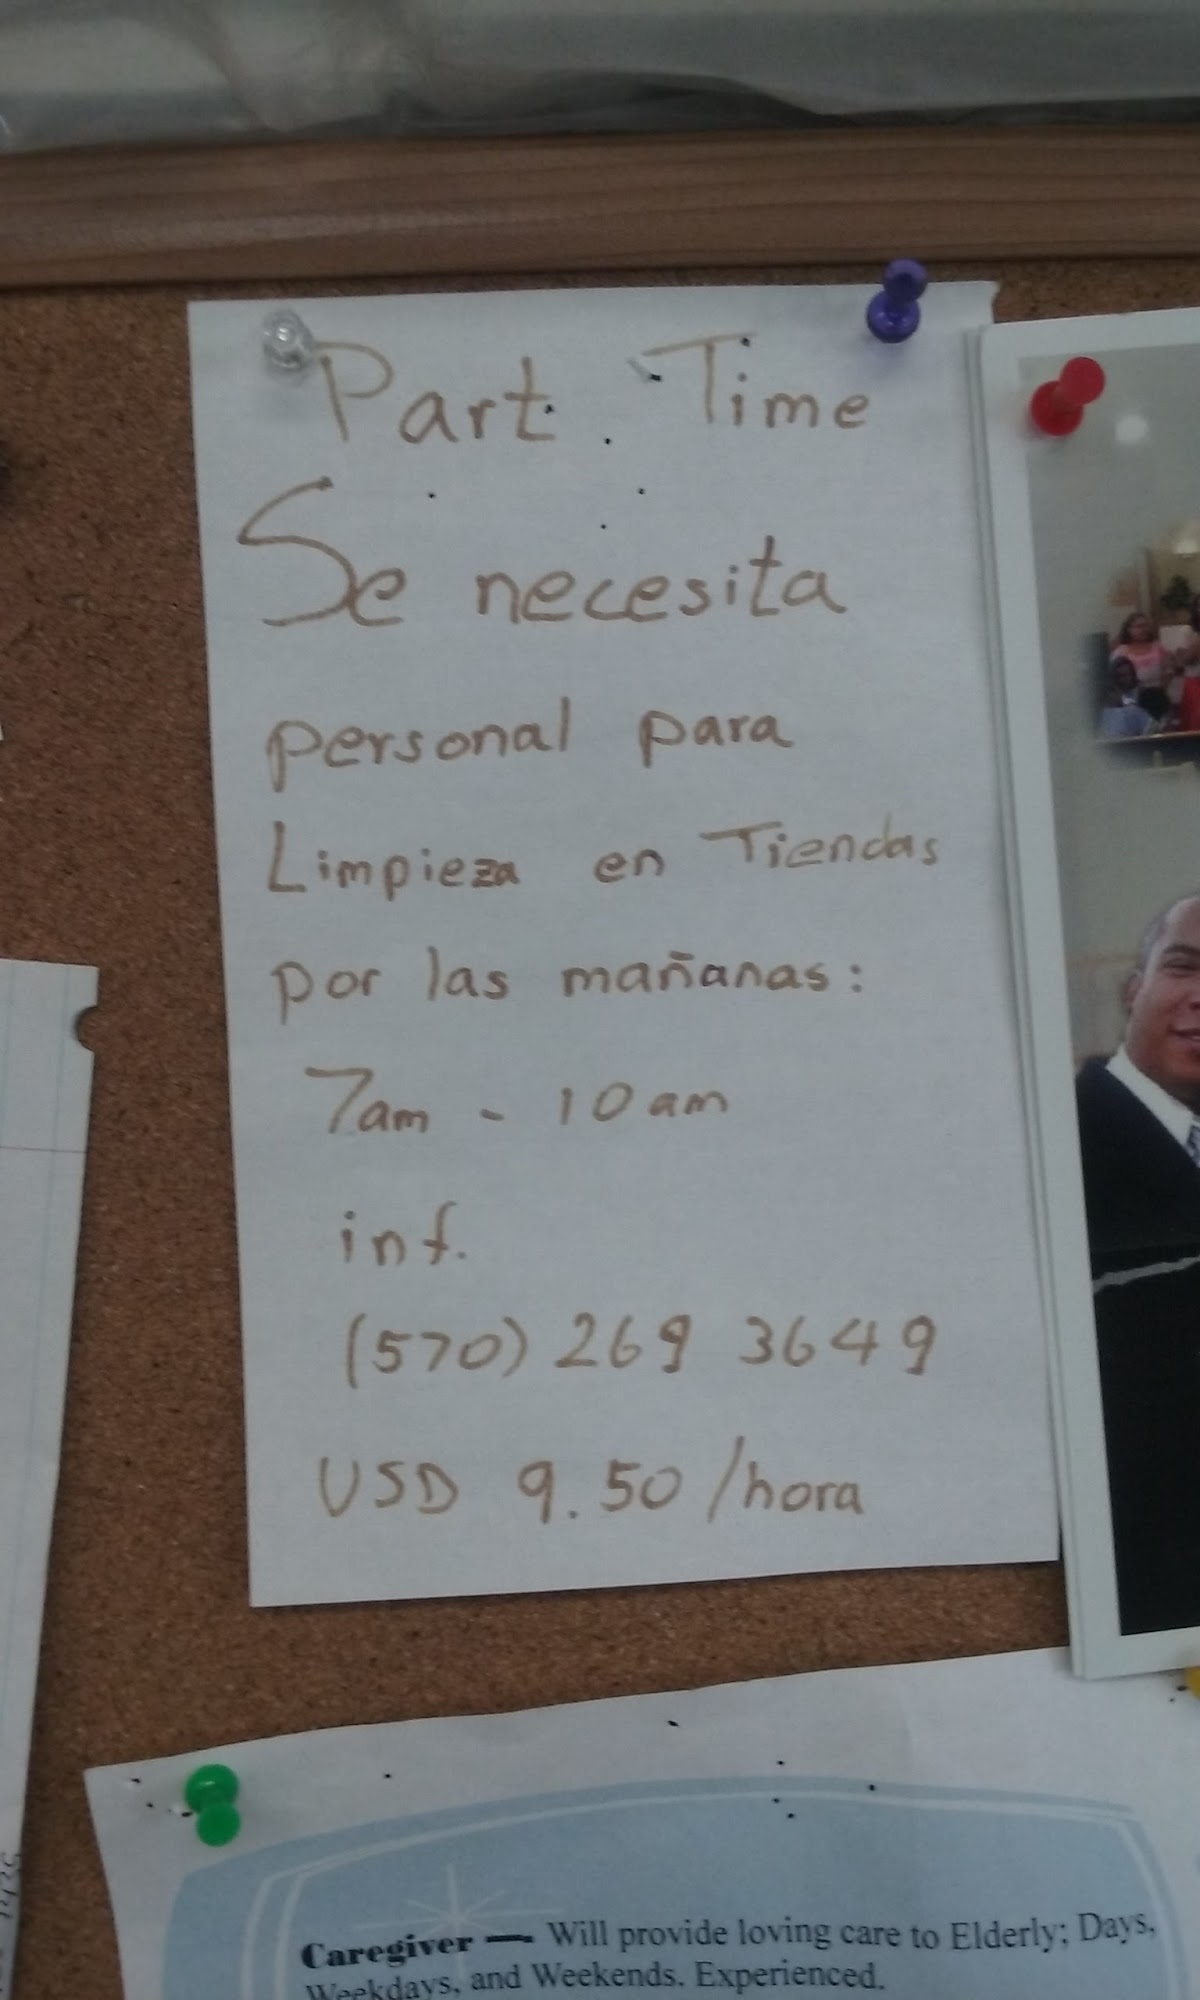 Part Time
Se necesita
personal para
Limpieza en Tiendas
por las mañanas:
7am - 10am
inf.
(570) 269 3649
USD 9.50/hora
Caregiver — Will provide loving care to Elderly; Days,
Weekdays, and Weekends. Experienced.